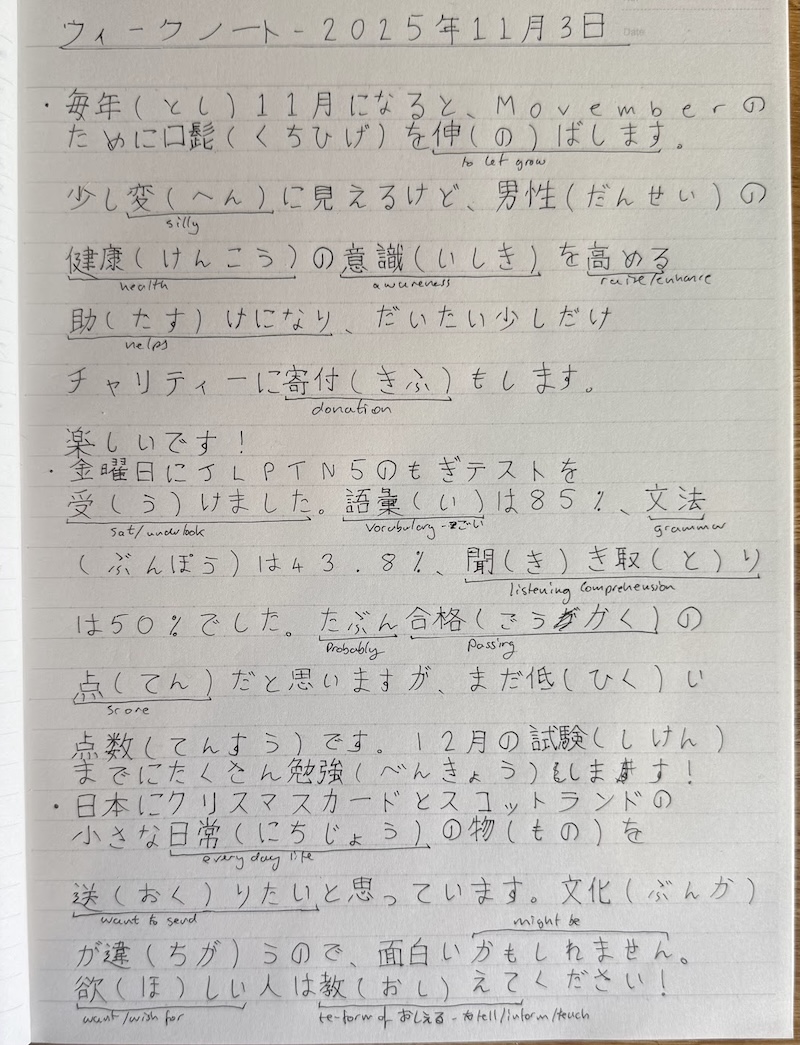 ウィークノート-2025年11月3日
Date
・毎年(とし)11月になると、Movemberの
ために口髭(くちひげ)を伸(の)ばします。
to let grow
少し変(へん)に見えるけど、男性(だんせい)の
silly
健康(けんこう)の意識(いしき)を高める
health awareness raise/enhance
助(たす)けになり、だいたい少しだけ
helps
チャリティーに寄付(きふ)もします。
donation
楽しいです!
・金曜日にJLPTN5のもぎテストを
受(う)けました。語彙(い)は85%、文法
sat/undertook vocabulary-ごい grammar
(ぶんぽう)は43.8%、聞(き)き取(と)り
listening comprehension
は50%でした。たぶん合格(ごうかく)の
Probably passing
点(てん)だと思いますが、まだ低(ひく)い
score
点数(てんすう)です。12月の試験(しけん)
までにたくさん勉強(べんきょう)します!
・日本にクリスマスカードとスコットランドの
小さな日常(にちじょう)の物(もの)を
every day life
送(おく)りたいと思っています。文化(ぶんか)
want to send might be
が違(ちが)うので、面白いかもしれません。
欲(ほ)しい人は教(おし)えてください!
want/wish for te-form of おしえる - to tell/inform/teach